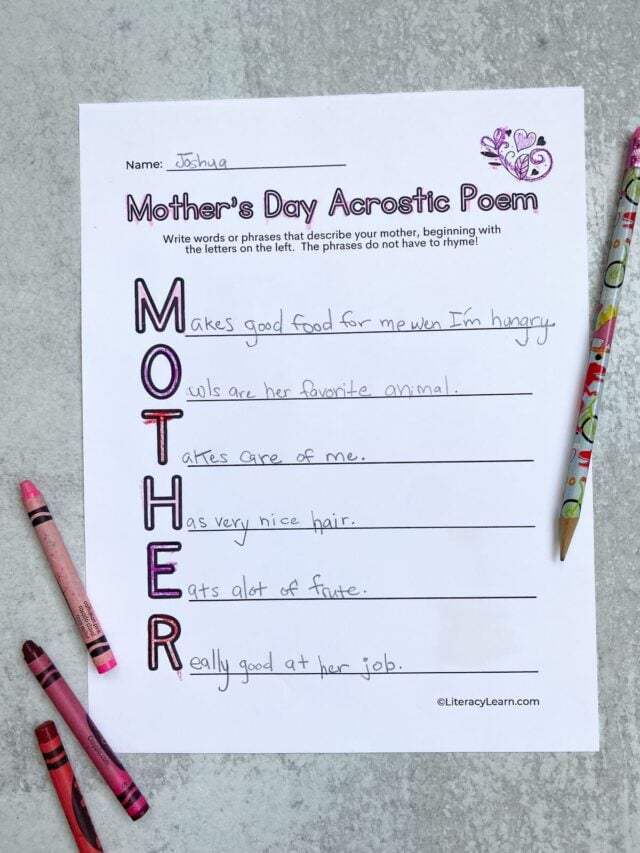 Name: Joshua
Mother's Day Acrostic Poem
Write words or phrases that describe your mother, beginning with
the letters on the left. The phrases do not have to rhyme!
Makes good food for me wen I'm hungry.
Owls are her favorite animal.
Takes care of me.
Has very nice hair.
Eats alot of frute.
Really good at her job.
©LiteracyLearn.com
Crayola.com